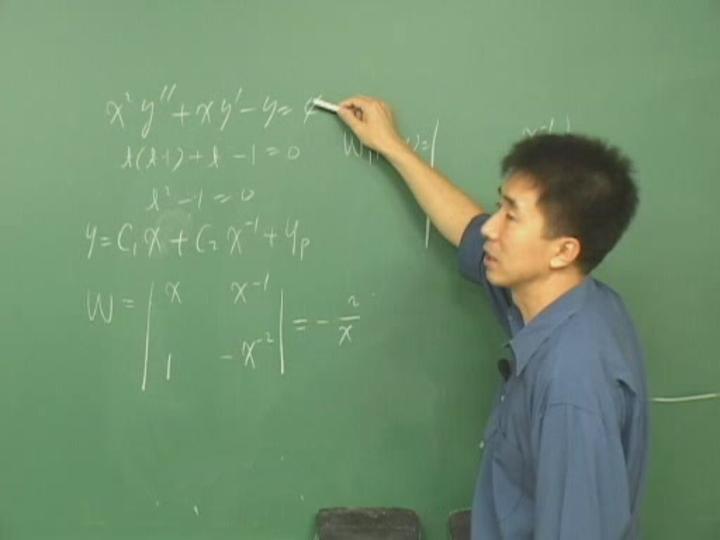 x² y'' + x y' - y =
λ(λ-1) + λ - 1 = 0
λ² - 1 = 0
y = C₁ x + C₂ x⁻¹ + yₚ
W = | x x⁻¹ | = - 2/x
| 1 - x⁻² |
W₁ = | x⁻¹ |